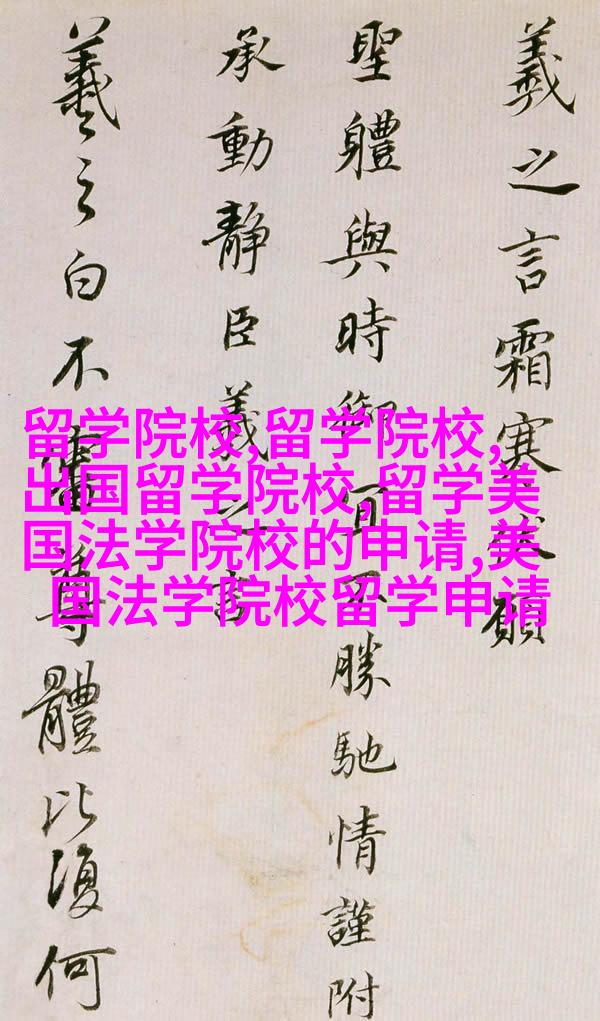 羲之言霜寒伏願
聖體與時御宜不勝馳情謹附
承動靜臣羲之言
羲之白不審尊體比復何
留学院校,留学院校,
出国留学院校,留学美
国法学院校的申请,美
国法学院校留学申请